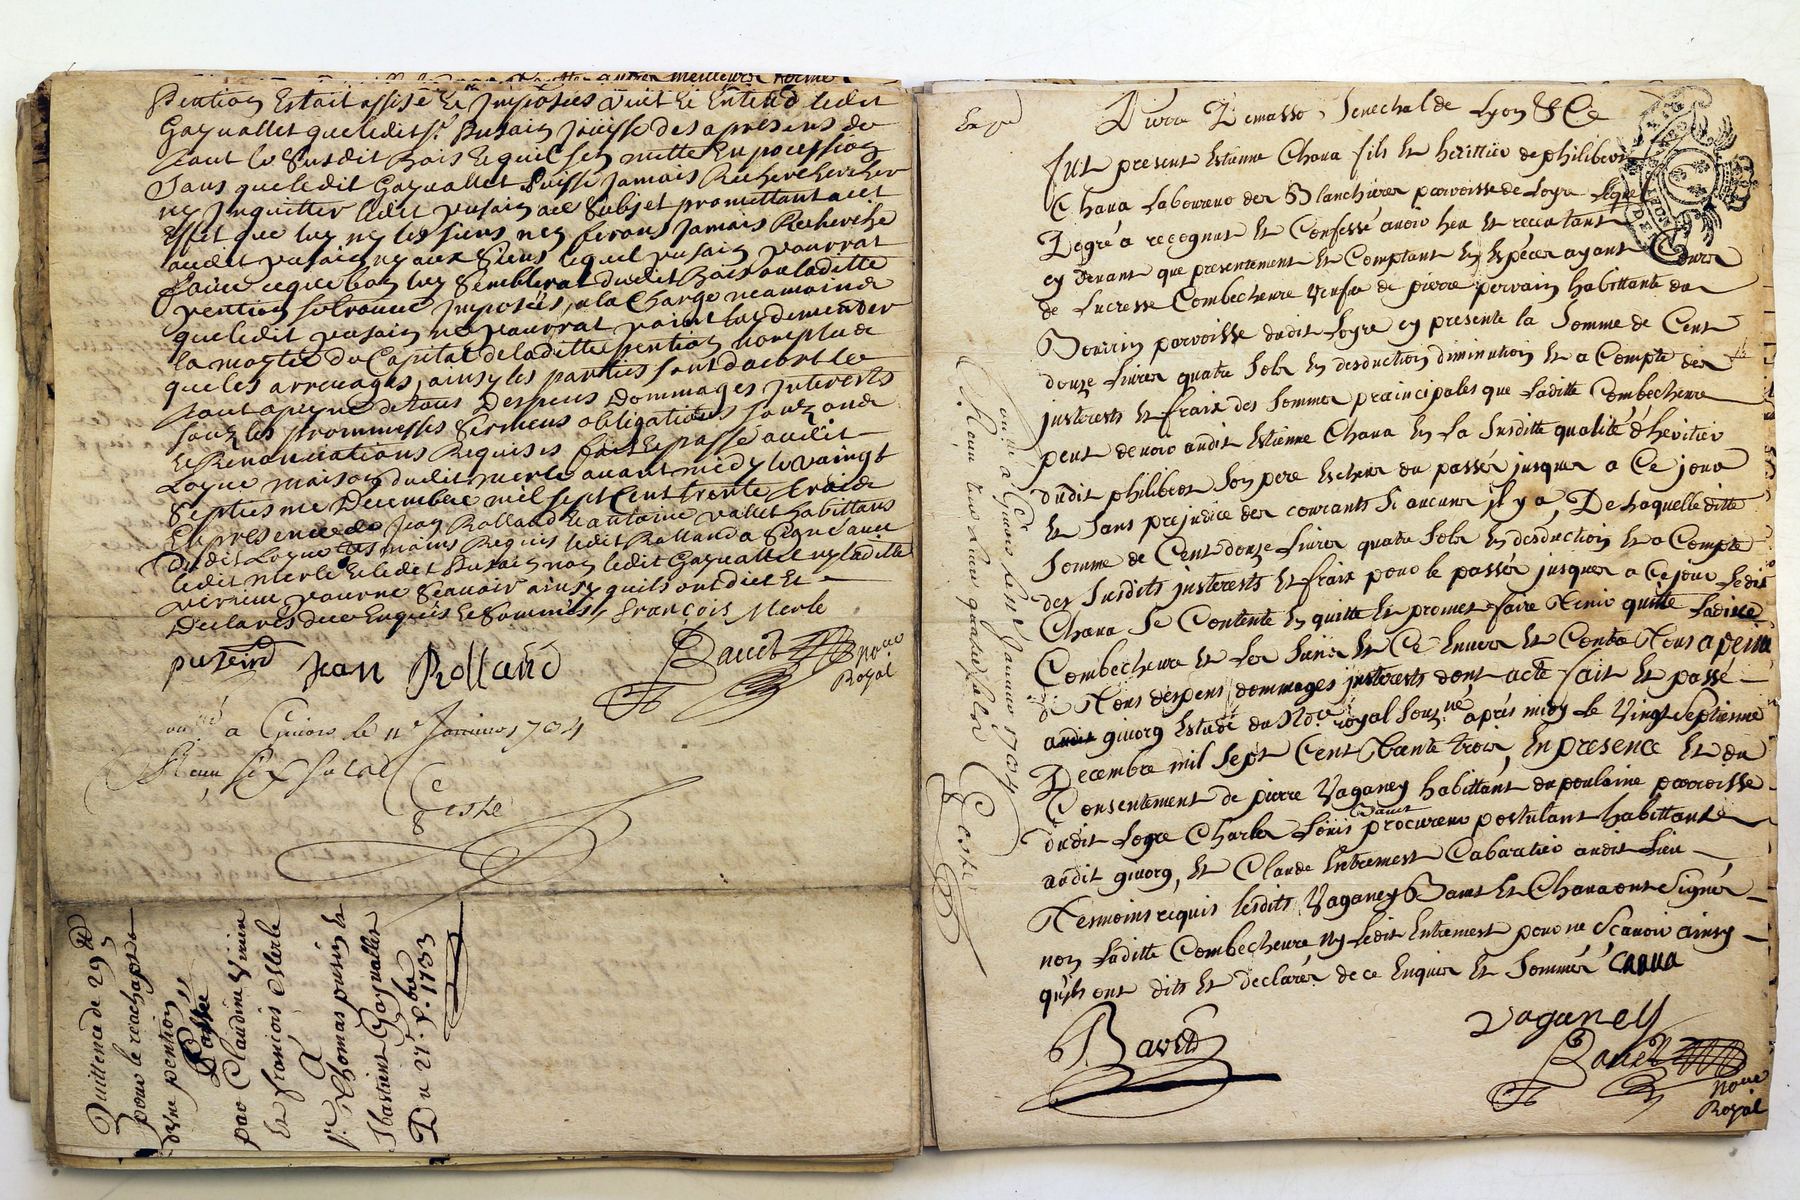 pention Estait assise Et Imposées veut Et Entend ledit
Gayuallet que ledit Sr. pusain Jouisse des apresens de
tout le Susdit bois Et quil sen mette En pocession
Sans que ledit Gayuallet puisse Jamais Rechercher
ny Inquitter ledit pusain ace Subjet promettant a cet
Effet que luy ny les siens nen ferons Jamais Recherche
audit pusain ny aux Siens lequel pusain pourrat
faire ce que bon luy Semblerat dudit bois ou laditte
pention se trouve Imposées, a la Charge neamoins
que ledit pusain ne pourrat point luy demender
la moytié du Capital de laditte pention non plus
que les arrerages, ainsy les parties sont dacort le
tout a peyne de tous Despens Dommages Interests
sous les prommesses Sermens obligations
Et Renonciations Requises fait Et passé audit
Loyre maison dudit merle avant midy le vaingt
Septiesme Decembre mil sept Cent trente trois
En presence de Jean Rolland Et antoine vallet habittans
dudit Loyre tesmoins Requis ledit Rolland a Signé avec
ledit merle Et ledit pusain non ledit Gayuallet ny laditte
virieu pour ne Scauoir ainsy quils ont dict Et
Declarés de ce Enquis Et Sommés, François Merle
Jean Rolland
Bauet
nore
Royal
a Giuors le 11e Januier 1734
Receu six solz
Coste
Quittence de 29
pour le reachapt
dune pention
Passée
par Claudine Virieu
Et francois Merle
A
Sr. Thomas pusin Et
Sbastient Gayuallet
Du 27. xbre 1733
Pierre Demasso, Senechal de Lyon &Ce
fut present Estienne Chana fils Et heritier de philibert
Chana Laboureur des Blanchieres parroisse de Loyre Lequel
De gré a recognut Et Confessé avoir heu Et receu tant
cy devant que presentement Et Comptant En Espéces ayant Cours
de Lucresse Combecheure veufue de pierre habittante du
parroisse dudit Loyre cy presente la Somme de Cent
douze Livres quatre Sols En desduction diminution Et a Compte des
justerests Et fraix des Sommes prainicipales que Laditte Combecheure
peut devoir audit Estienne Chana En La Susditte qualité d'hévitier
dudit philibert Son pere Escheus du passés jusques a Ce jour
Et Sans prejudice des courants Si aucuns il y a, De Laquelle ditte
Somme de Cent douze Livres quatre Sols En desduction Et a Compte
des Susdits justerests Et fraix pour le passés jusques a Ce jour Ledit
Chana Se Contente En quitte Et promet faire Tenir quitte Laditte
Combecheure Et Les Siens Et Ce Envers Et Contre Tous a peine
de Tous déspens dommages justerests dont acte fait Et passé
audit giuorg Estude du Nore royal Souzné, aprés midy Le Vingt Septieme
Decembre mil Sept Cent Trente trois, En presence Et du
Consentement de pierre Vaganey habittant du poulaine parroisse
dudit Loyre Charles Louis Bauet procureur postulant habittant
audit giuorg, Et Claude Entremest Cabaratier audit Lieu
Tesmoins requis Lesdits Vaganey Bauet Et Chana ont Signés
non Laditte Combecheure ny Ledit Entremest pour ne Scavoir ainsy
qu'ils ont dits Et declarés de ce Enquis Et Sommés CANUA
Vaganey
Bavet
Bauet
nore
Royal
a Giuors le 11e Januier 1734
Receu quatre solz
Coste